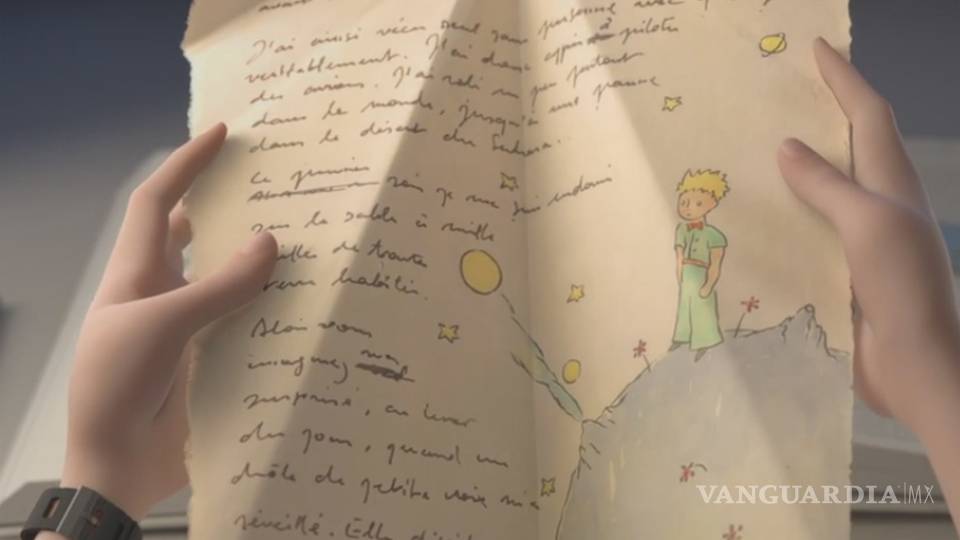 J'ai ainsi vécu seul sans personne avec
véritablement. J'ai donc appris à piloter
des avions. J'ai volé un peu partout
dans le monde, jusqu'à une panne
dans le désert du Sahara.
Ce premier
soir je me suis endormi
sur le sable à mille
milles de toute
terre habitée.
Alors vous
imaginez ma
surprise, au lever
du jour, quand une
drôle de petite voix m'a
réveillé. Elle disait
VANGUARDIA|MX